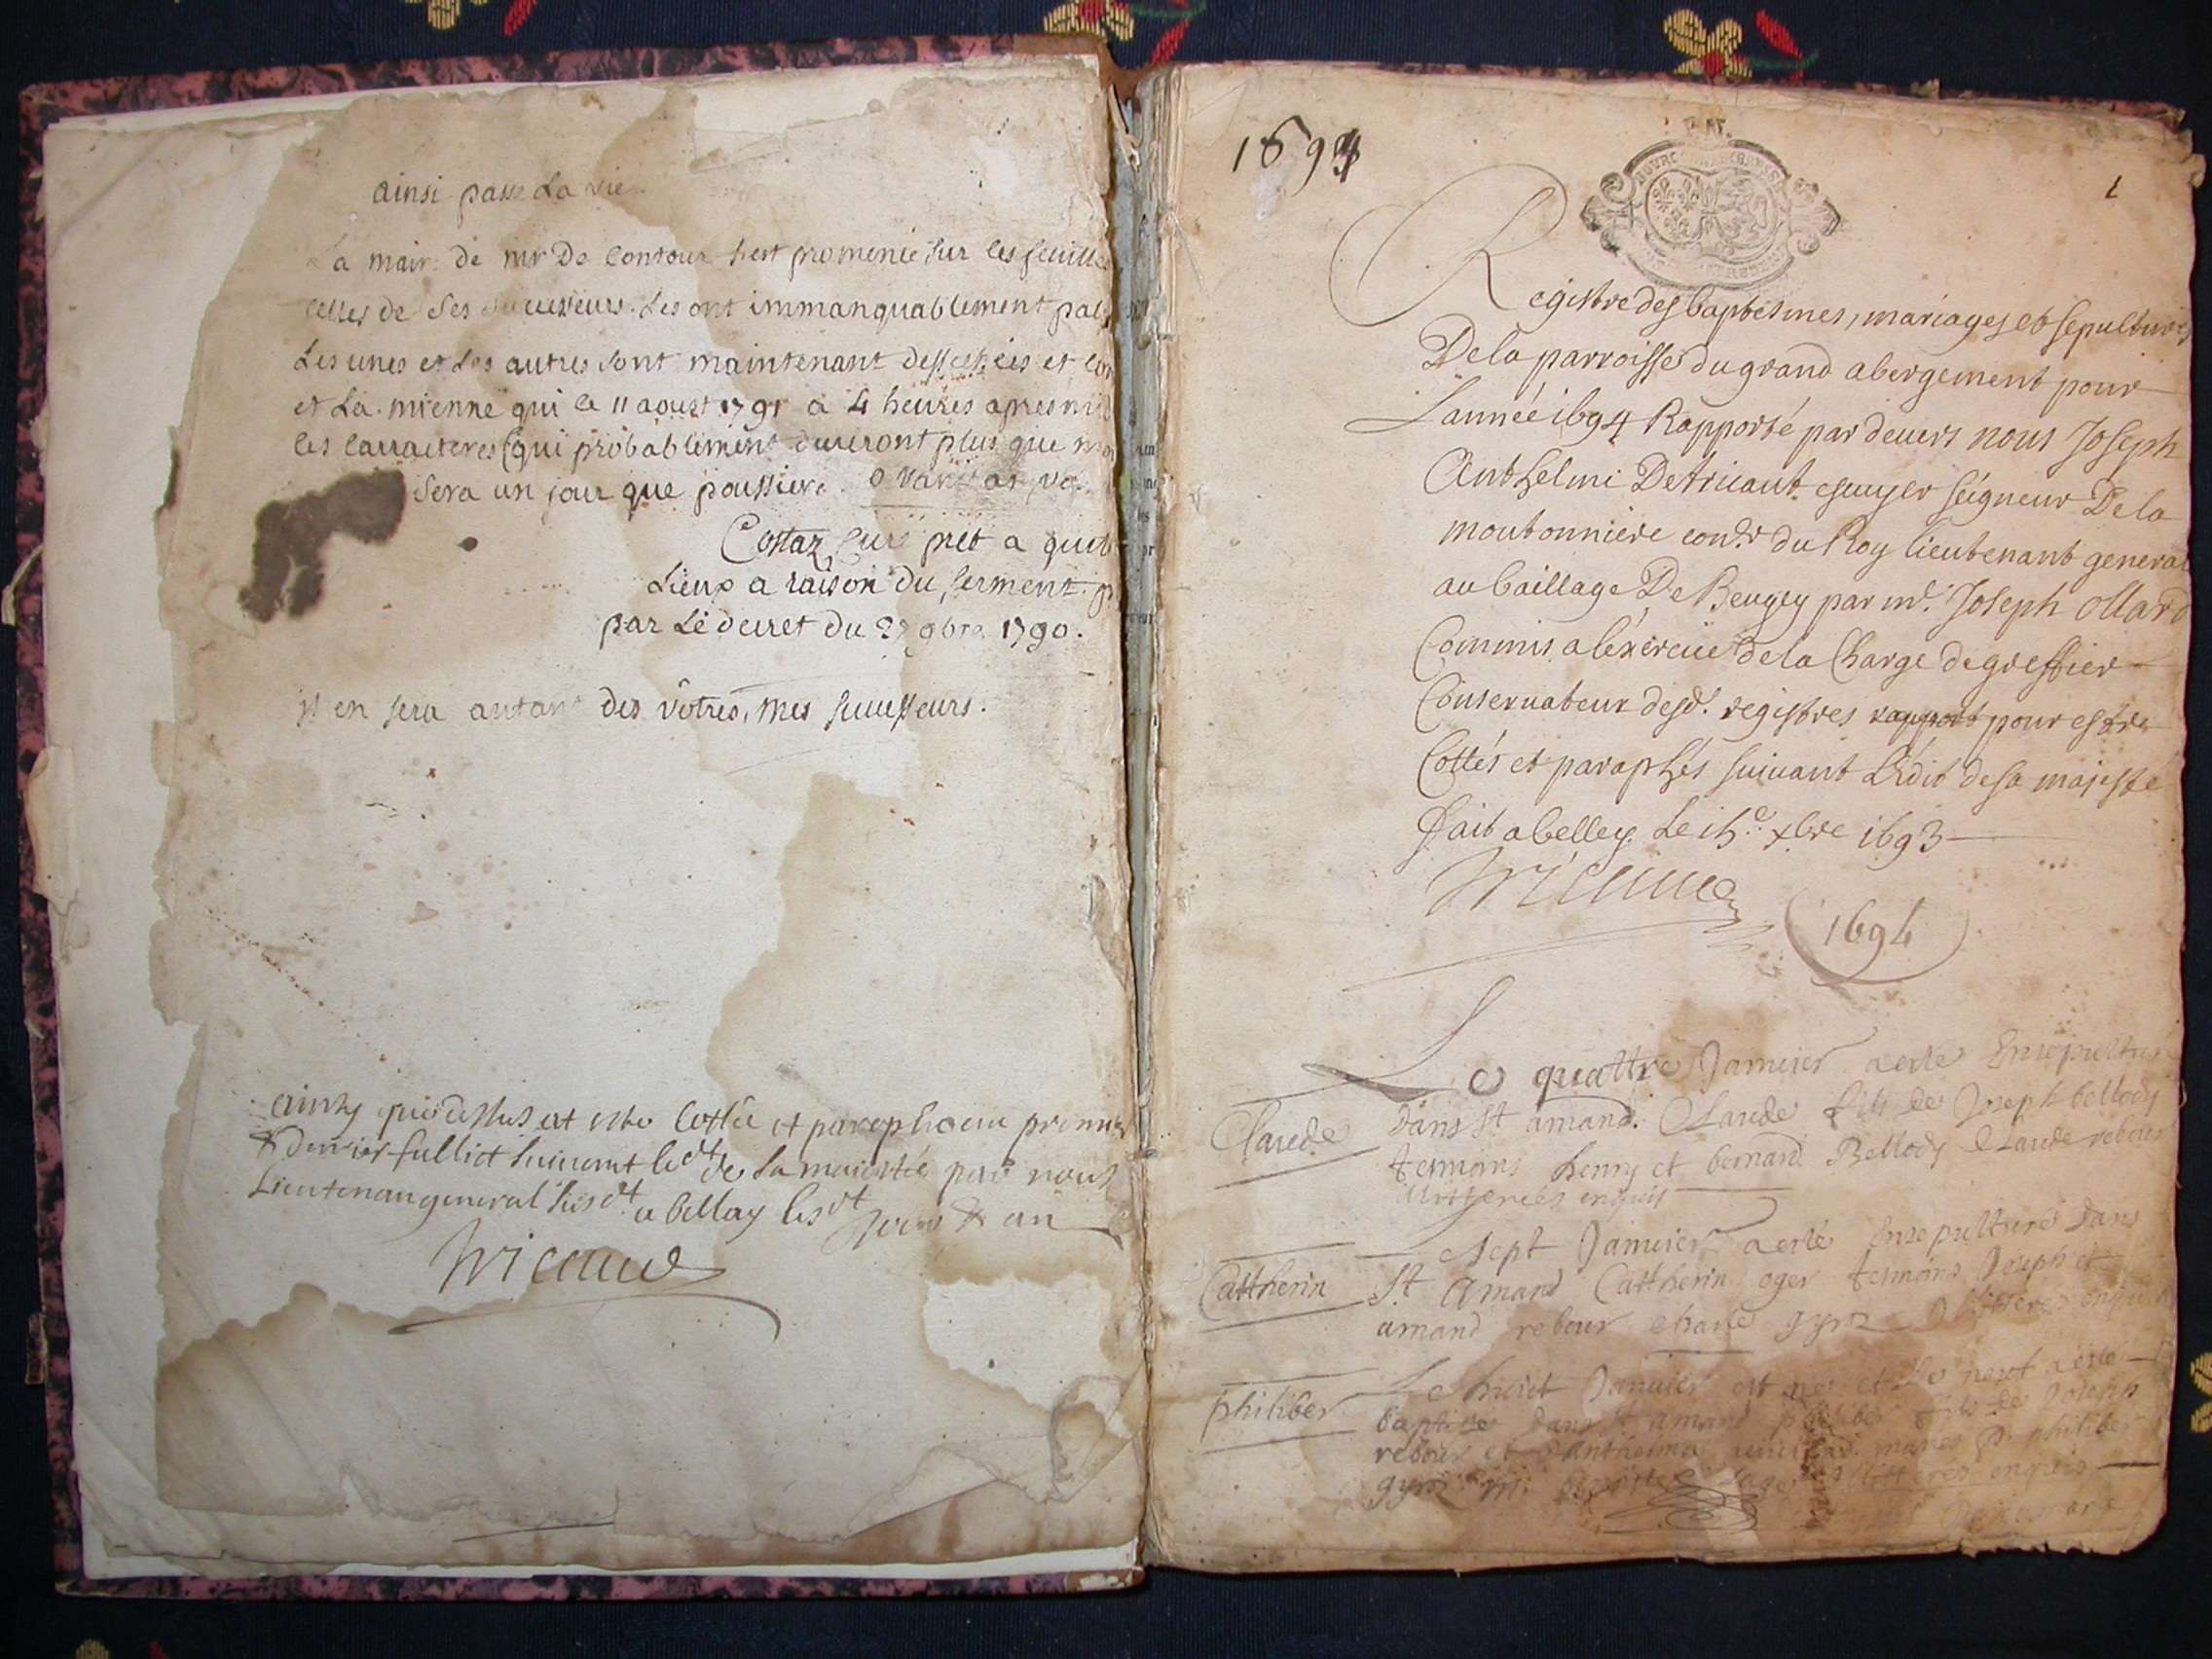 ainsi passe La vie
La main de mr De Contour s'est promenée sur ces feuilles
celles de Ses successeurs Les ont immanquablement
Les unes et Les autres sont maintenant dessechées et
et La mienne qui le 11 aoust 1791 a 4 heures apres
les carracteres (qui probablement dureront plus que
sera un jour que poussiere. O
Costaz Curé pret a
Lieux a raison du serment
par Le decret du 27 9bre 1790.
il en sera autant des vôtres, mes successeurs.
dessus at este cottée et
& dernier fulliet suivant de Sa maiestée par nous
Lieutenan general susdt a Bellay & an
1694
1
Registre des baptesmes, mariages et sepultures
De la parroisse du grand abergement pour
L'année 1694 Rapporté par devers nous Joseph
Anthelme De seigneur De la
moutonniere conr. du Roy lieutenant general
au baillage De Beugey par mr. Joseph Ollard
Commis a l'exercice de la Charge de greffier
Conservateur desd. registres rapport pour estre
Cottés et paraphés suivant L'édit de sa majesté
Fait a belley Le 15e xbre 1693
1694
Le quattre Janvier a este Ensepulturé
Claude
Dans St amand. Claude fils de Joseph bellody
tesmoins henry et bernard Bellody Claude rebour
illitterées enquis
sept Janvier a esté Ensepulturé Dans
Cattherin
St Amand Cattherin oger tesmoins Joseph et
amand rebour charle illitteres enquis
Le huict Janvier est né et Le neuf a este
philiber
baptise Dans St amand fils de Joseph
rebour et Danthelma mariés pr. philiber
illitterés enquis